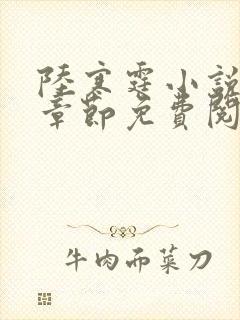 陸寒霆小說
章節免費閱
牛肉而菜刀